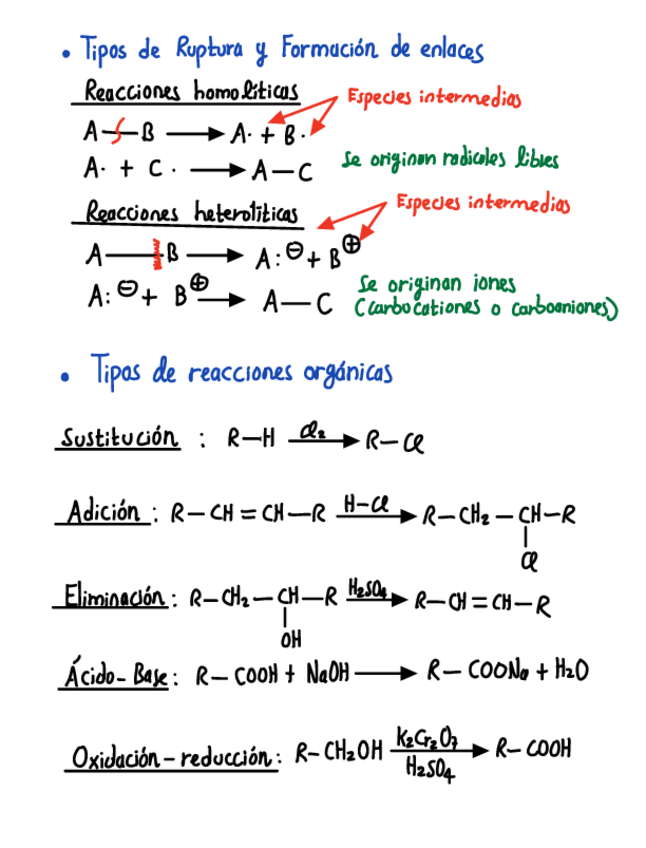 • Tipos de Ruptura y Formación de enlaces
Reacciones homolíticas
Especies intermedias
A—B ⟶ A· + B·
A· + C· ⟶ A—C
Se originan radicales libres
Reacciones heterolíticas
Especies intermedias
A—B ⟶ A:⊖ + B⊕
A:⊖ + B⊕ ⟶ A—C
Se originan iones
(carbocationes o carboaniones)
• Tipos de reacciones orgánicas
Sustitución : R—H Cl₂ ⟶ R—Cl
Adición : R—CH=CH—R H—Cl ⟶ R—CH₂—CH—R
Cl
Eliminación : R—CH₂—CH—R H₂SO₄ ⟶ R—CH=CH—R
OH
Ácido-Base : R—COOH + NaOH ⟶ R—COONa + H₂O
Oxidación-reducción : R—CH₂OH K₂Cr₂O₇ ⟶ R—COOH
H₂SO₄